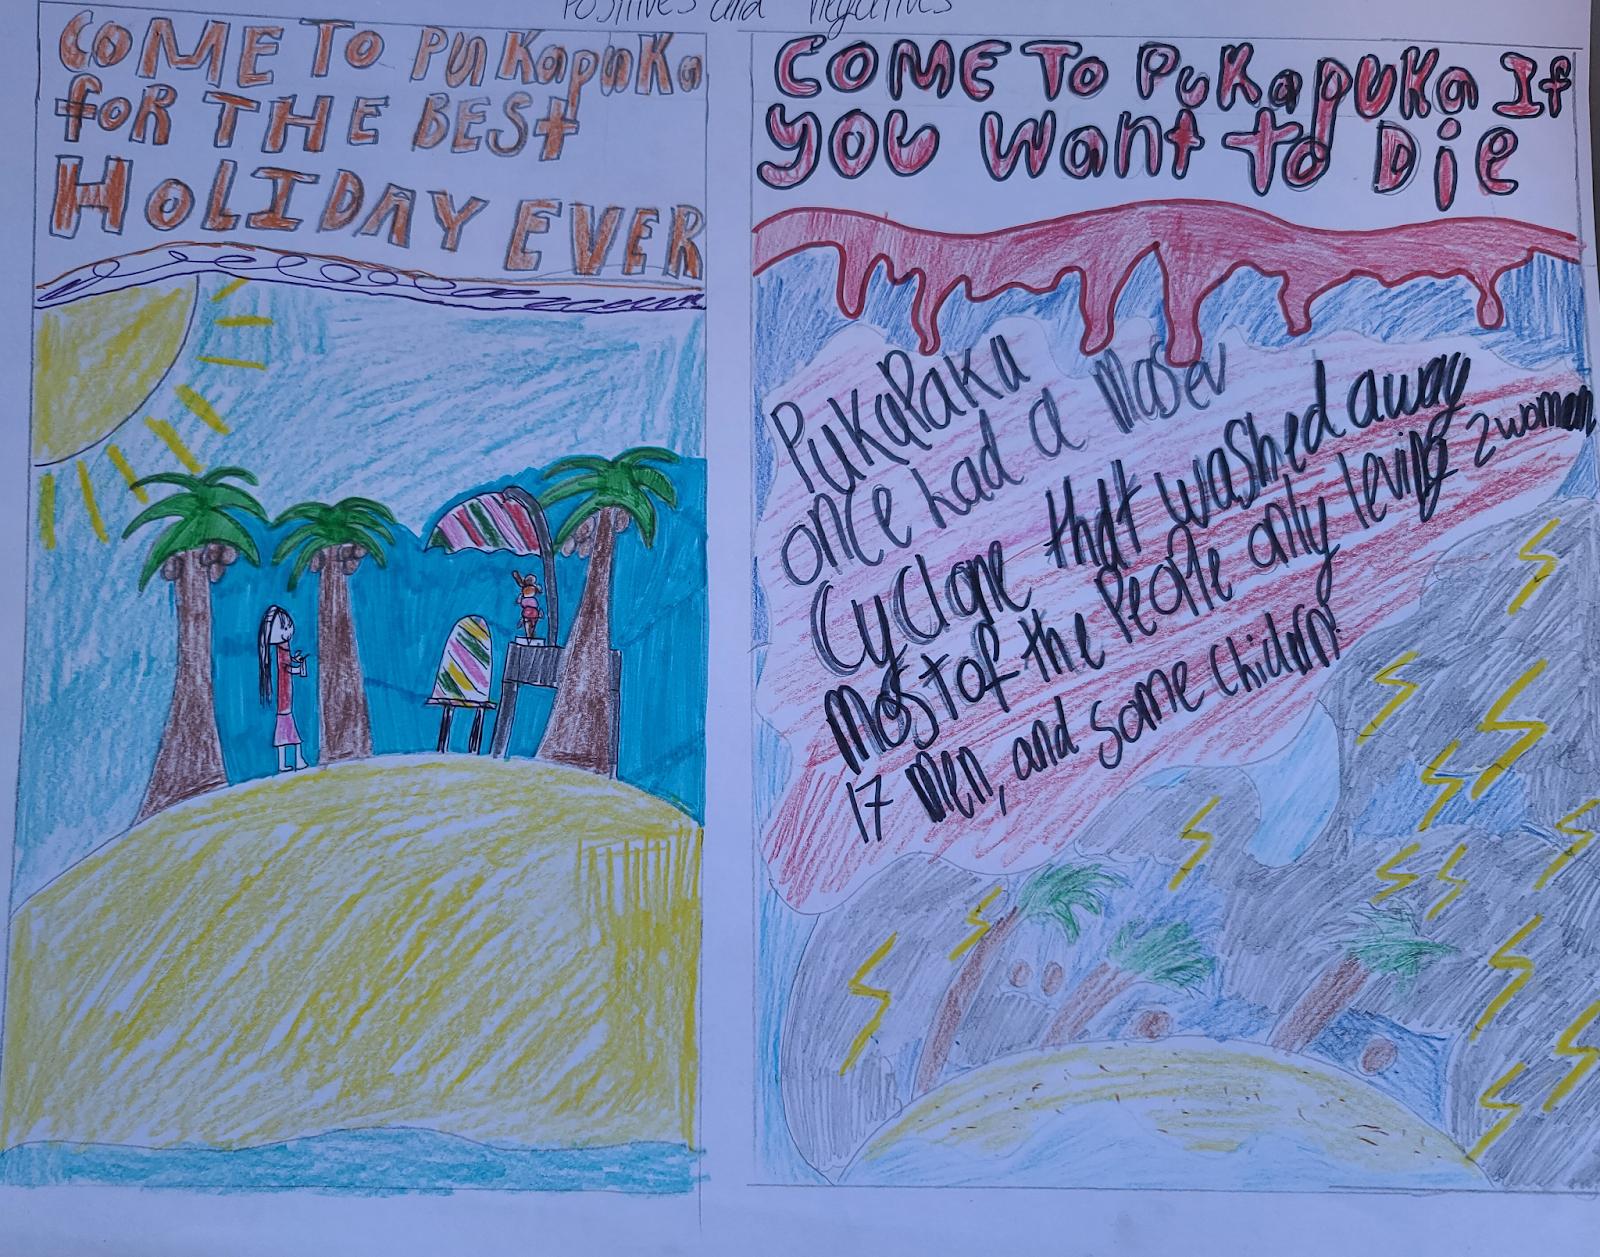 Positives and negatives
COME TO PuKapuKa
foR THE BESt
HOLIDAY EVER
COME To PuKapuKa If
you want to Die
PuKaPaKa
once had a Masev
Cyclone that washed away
Most of the People only leving 2 woman
17 Men, and some Children.